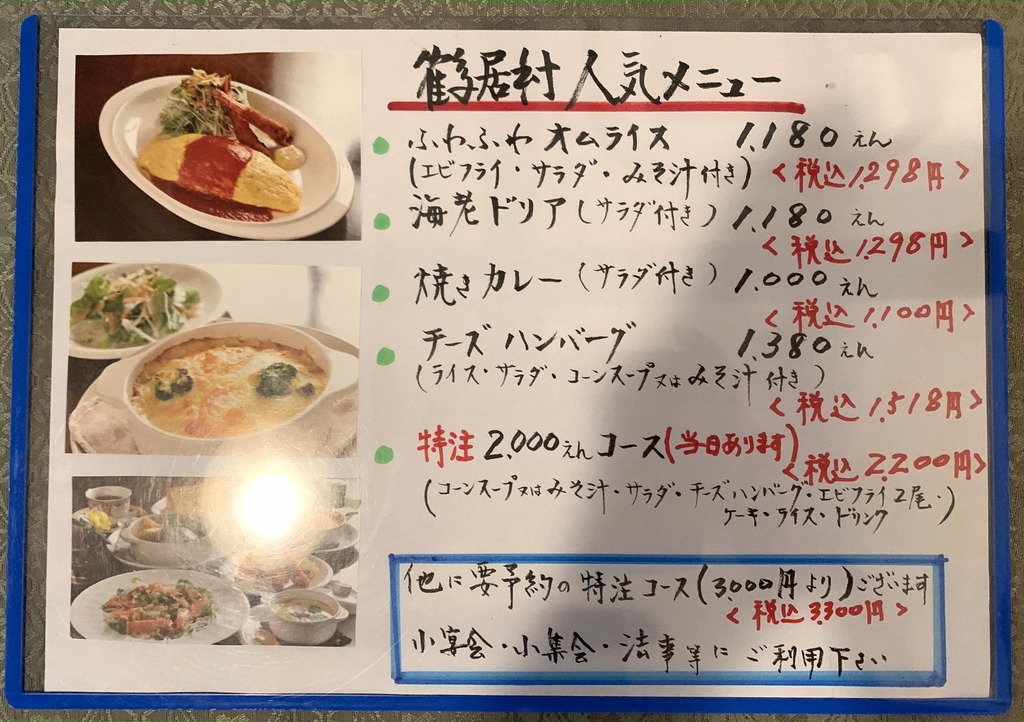 鶴居村人気メニュー
ふわふわオムライス 1,180えん
(エビフライ・サラダ・みそ汁付き) <税込1,298円>
海老ドリア(サラダ付き) 1,180えん
<税込1,298円>
焼きカレー(サラダ付き) 1,000えん
<税込1,100円>
チーズハンバーグ 1,380えん
(ライス・サラダ・コーンスープ又はみそ汁付き)
<税込1,518円>
特注2,000えんコース(当日あります)
<税込2,200円>
(コーンスープ又はみそ汁・サラダ・チーズハンバーグ・エビフライ2尾・
ケーキ・ライス・ドリンク)
他に要予約の特注コース(3,000円より)ございます
<税込3,300円>
小宴会・小集会・法事等にご利用下さい